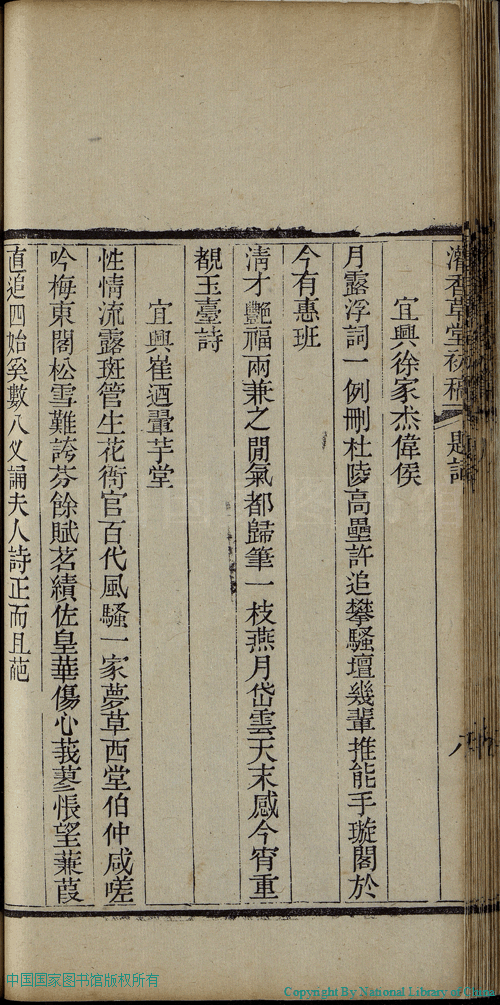 澹香草堂初稿 題詞 八
宜興徐家杰偉侯
月露浮詞一例刪杜陵高壘許追攀騷壇幾輩推能手璇閣於
今有惠班
清才艷福兩兼之閒氣都歸筆一枝燕月岱雲天末感今宵重
覩玉臺詩
宜興崔迺翬芋堂
性情流露斑管生花衙官百代風騷一家夢草西堂伯仲咸嗟
吟梅東閣松雪難誇芬餘賦茗績佐皇華傷心莪蓼悵望蒹葭
直追四始奚數八义誦夫人詩正而且葩
中国国家图书馆版权所有
Copyright By National Library of China